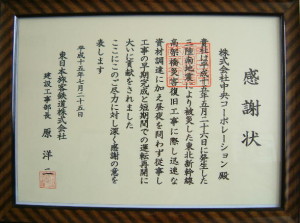 感謝状
株式会社中井コーポレーション殿
貴社は平成十五年五月二十六日に発生した
三陸南地震により被災した東北新幹線
高架橋災害復旧工事に際し迅速な
資材調達に加え昼夜を問わず従事し
工事の早期完成と短期間での運転再開に
大いに貢献をされました
ここにこのご尽力に対し深く感謝の意を
表します
平成十五年七月二十五日
東日本旅客鉄道株式会社
建設工事部長 原 洋一